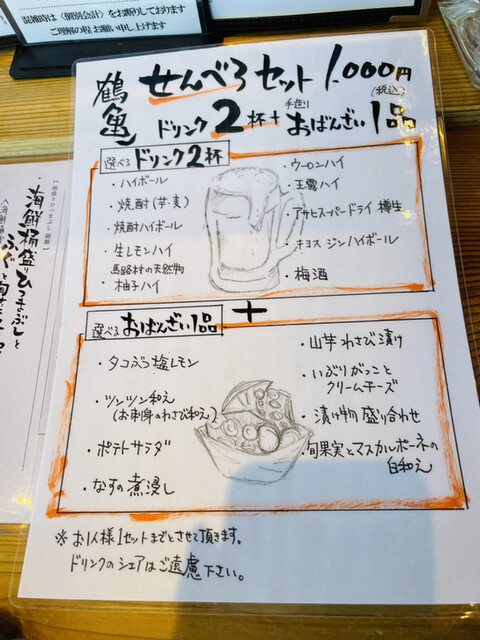 混雑時は〈個別会計〉をお断りしております
ご理解の程お願い申し上げます
鶴亀
せんべろセット 1,000円
(税込)
ドリンク2杯+手造りおばんざい1品
選べるドリンク2杯
・ハイボール
・焼酎(芋・麦)
・焼酎ハイボール
・生レモンハイ
・馬路村の天然物
柚子ハイ
・ウーロンハイ
・玉露ハイ
・アサヒスーパードライ樽生
・キヨス ジンハイボール
・梅酒
+
選べるおばんざい1品
・タコぶつ塩レモン
・ツンツン和え
(お刺身のわさび和え)
・ポテトサラダ
・なすの煮浸し
・山芋わさび漬け
・いぶりがっこと
クリームチーズ
・漬け物盛り合わせ
・旬果実とマスカルポーネの
白和え
※お1人様1セットまでとさせて頂きます。
ドリンクのシェアはご遠慮下さい。
・海鮮桶盛ひつまぶしと